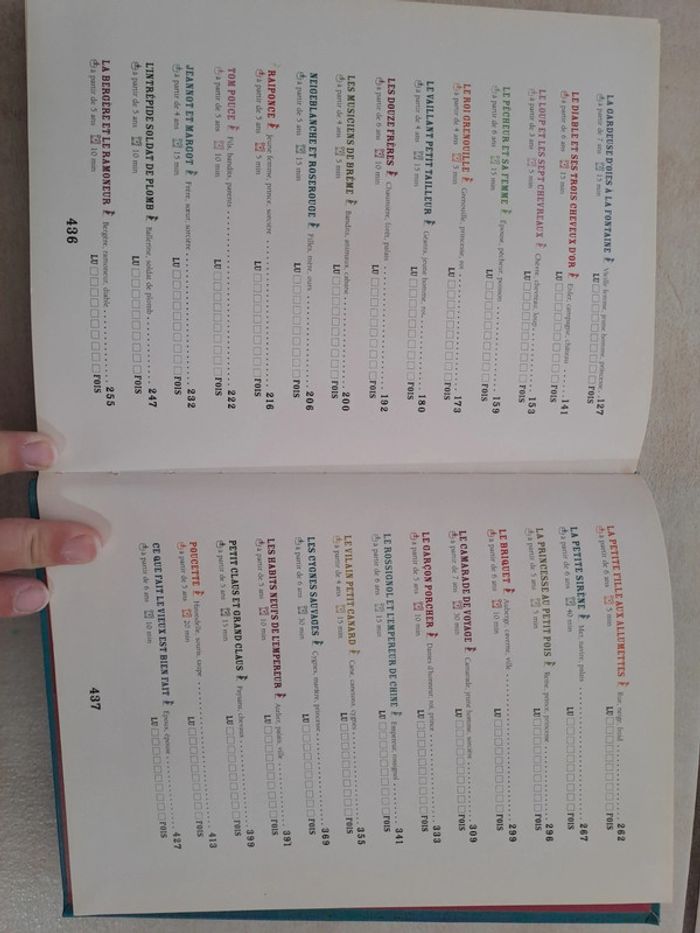 LA GARDEUSE D'OIES À LA FONTAINE Vieille femme, jeune homme, princesse 127
à partir de 7 ans 15 min LU FOIS
LE DIABLE ET SES TROIS CHEVEUX D'OR Enfer, campagne, château 141
à partir de 6 ans 15 min LU FOIS
LE LOUP ET LES SEPT CHEVREAUX Chèvre, chevreau, loup 153
à partir de 4 ans 5 min LU FOIS
LE PÊCHEUR ET SA FEMME Épouse, pêcheur, poisson 159
à partir de 6 ans 15 min LU FOIS
LE ROI GRENOUILLE Grenouille, princesse, roi 173
à partir de 4 ans 5 min LU FOIS
LE VAILLANT PETIT TAILLEUR Géants, jeune homme, roi 180
à partir de 4 ans 15 min LU FOIS
LES DOUZE FRÈRES Chaumière, forêt, palais 192
à partir de 6 ans 10 min LU FOIS
LES MUSICIENS DE BRÊME Bandits, animaux, cabane 200
à partir de 4 ans 5 min LU FOIS
NEIGEBLANCHE ET ROSEROUGE Filles, mère, ours 206
à partir de 5 ans 15 min LU FOIS
RAIPONCE Jeune femme, prince, sorcière 216
à partir de 5 ans 5 min LU FOIS
TOM POUCE Fils, bandits, parents 222
à partir de 5 ans 10 min LU FOIS
JEANNOT ET MARGOT Frère, sœur, sorcière 232
à partir de 4 ans 15 min LU FOIS
L'INTRÉPIDE SOLDAT DE PLOMB Ballerine, soldat de plomb 247
à partir de 5 ans 10 min LU FOIS
LA BERGÈRE ET LE RAMONEUR Bergère, ramoneur, diable 255
à partir de 5 ans 10 min LU FOIS
436
LA PETITE FILLE AUX ALLUMETTES Rue, neige, froid 262
à partir de 6 ans 5 min LU FOIS
LA PETITE SIRÈNE Mer, navire, palais 267
à partir de 6 ans 40 min LU FOIS
LA PRINCESSE AU PETIT POIS Reine, prince, princesse 296
à partir de 5 ans 5 min LU FOIS
LE BRIQUET Auberge, caverne, ville 299
à partir de 6 ans 10 min LU FOIS
LE CAMARADE DE VOYAGE Camarade, jeune homme, sorcière 309
à partir de 7 ans 30 min LU FOIS
LE GARÇON PORCHER Dames d'honneur, roi, prince 333
à partir de 5 ans 10 min LU FOIS
LE ROSSIGNOL ET L'EMPEREUR DE CHINE Empereur, rossignol 341
à partir de 6 ans 15 min LU FOIS
LE VILAIN PETIT CANARD Cane, canetons, cygnes 355
à partir de 4 ans 15 min LU FOIS
LES CYGNES SAUVAGES Cygnes, marâtre, princesse 369
à partir de 6 ans 30 min LU FOIS
LES HABITS NEUFS DE L'EMPEREUR palais, ville 391
à partir de 5 ans 10 min LU FOIS
PETIT CLAUS ET GRAND CLAUS Paysans, chevaux 399
à partir de 5 ans 15 min LU FOIS
POUCETTE Hirondelle, souris, taupe 413
à partir de 6 ans 20 min LU FOIS
CE QUE FAIT LE VIEUX EST BIEN FAIT Époux, épouse 427
à partir de 6 ans 10 min LU FOIS
437